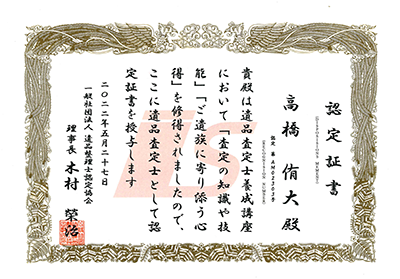 認定証書
高橋 侑大 殿
貴殿は遺品査定士養成講座
において「査定の知識や技
能」「ご遺族に寄り添う心
得」を修得されましたので、
ここに遺品査定士として認
定証書を授与します
二〇二二年五月二十七日
一般社団法人 遺品整理士認定協会
理事長 木村 榮治